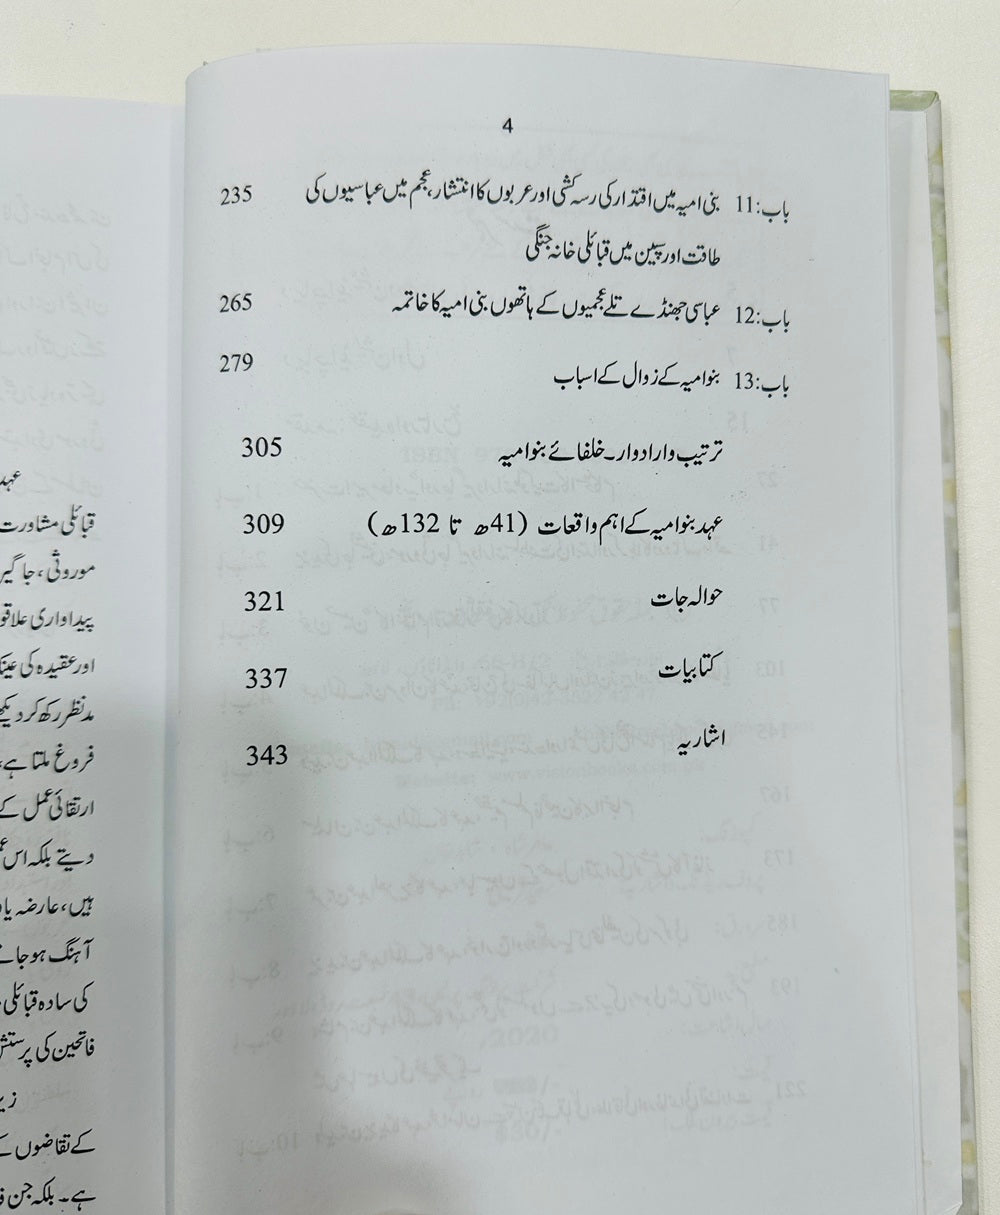 4
باب:11 بنی امیہ میں اقتدار کی رسہ کشی اور عربوں کا انتشار، عجم میں عباسیوں کی 235
طاقت اور سپین میں قبائلی خانہ جنگی
باب:12 عباسی جھنڈے تلے عجمیوں کے ہاتھوں بنی امیہ کا خاتمہ 265
باب:13 بنو امیہ کے زوال کے اسباب 279
ترتیب وار ادوار۔ خلفائے بنو امیہ 305
عہد بنو امیہ کے اہم واقعات (41ھ تا 132ھ) 309
حوالہ جات 321
کتابیات 337
اشاریہ 343
عہد
قبائلی مشاورت
موروثی، جاگیر
پیداواری علاقو
اور عقیدہ کی عینک
مدنظر رکھ کر دیکھ
فروغ ملتا ہے،
ارتقائی عمل کے
دیتے بلکہ اس
ہیں، عارضہ یا
آہنگ ہو جا
کی سادہ قبائلی
فاتحین کی پرستش
زیر
کے تقاضوں ک
ہے۔ بلکہ جن